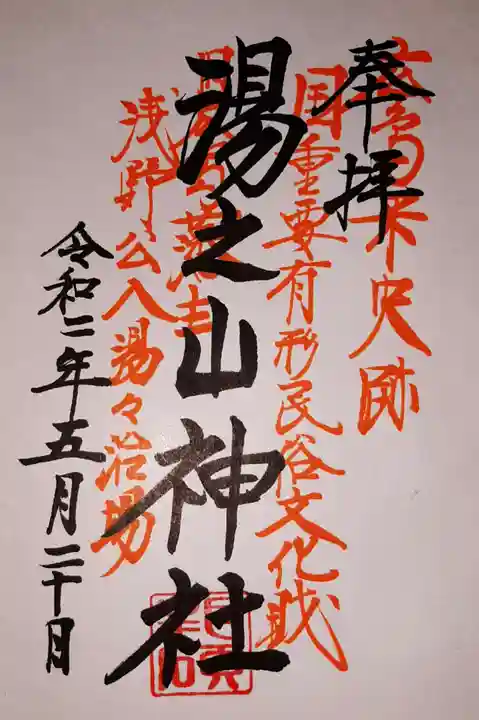 奉拝
広島県史跡
国重要有形民俗文化財
湯之山神社
浅野公入湯々治場
令和二年五月二十日